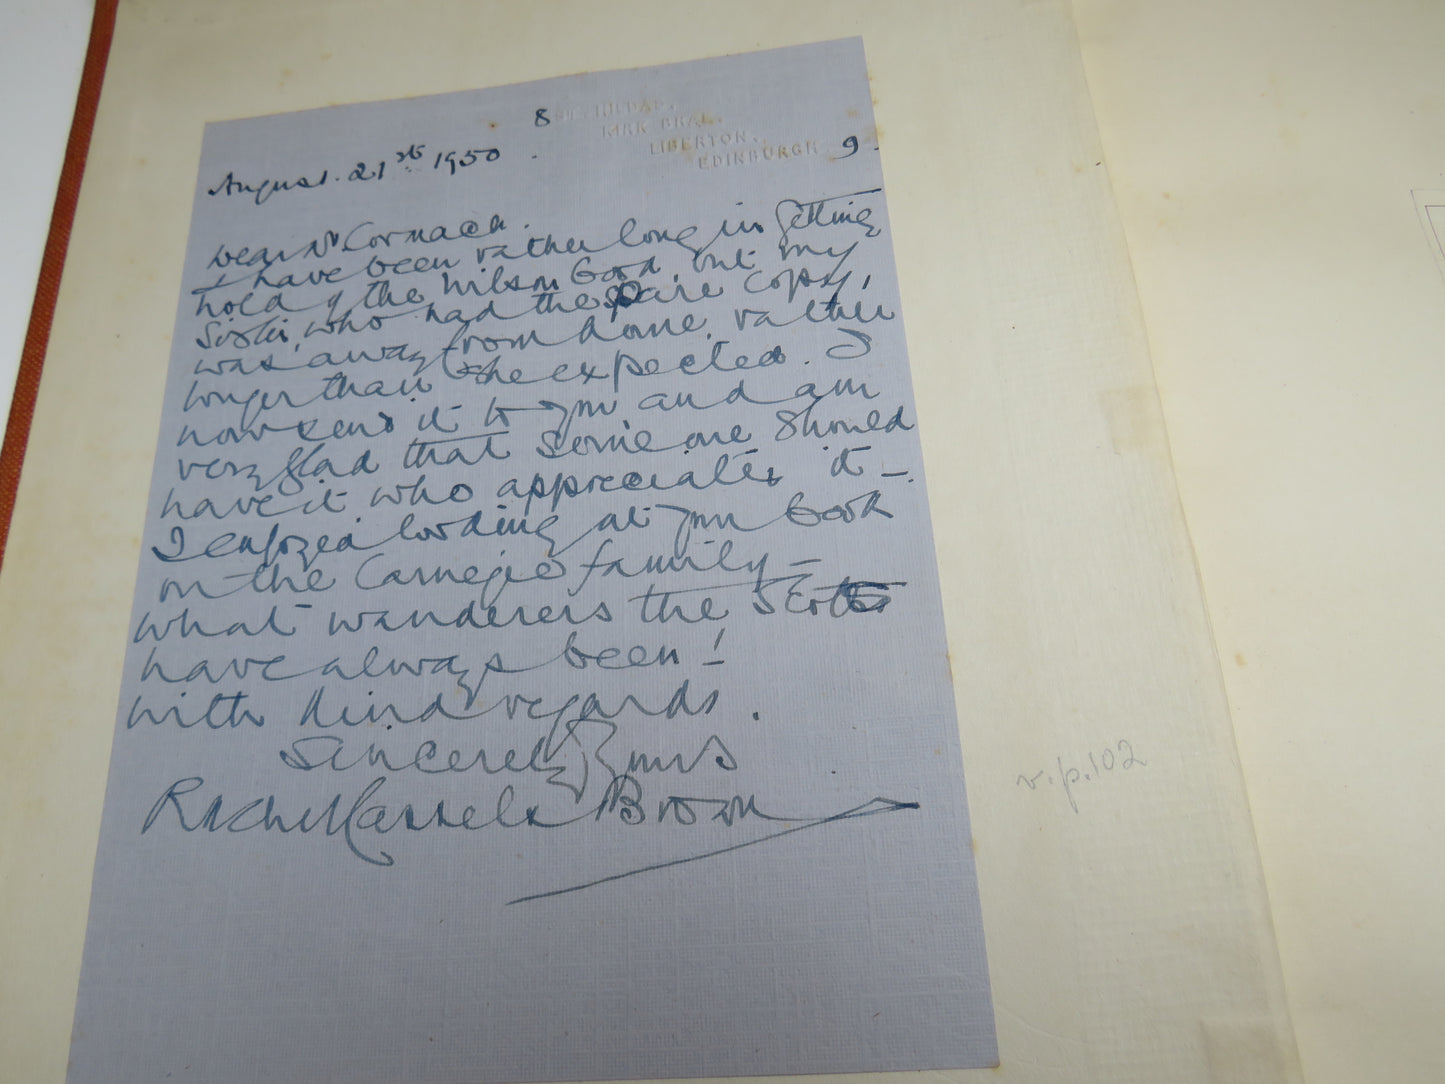 8 ST. HILDAS.
KIRK BRAE.
LIBERTON.
EDINBURGH 9.
August. 21st 1950.
Dear Dr. Cormack.
I have been rather long in getting
hold of the Wilson book, but my
sister, who had the spare copy,
was away from home, rather
longer than she expected. I
now send it to you and am
very glad that some one should
have it who appreciates it -.
I enjoyed looking at your book
on the Carnegie family -
what wanderers the Scots
have always been!
With kind regards.
Sincerely yours
Rachel Cassels Brown
v.p.102